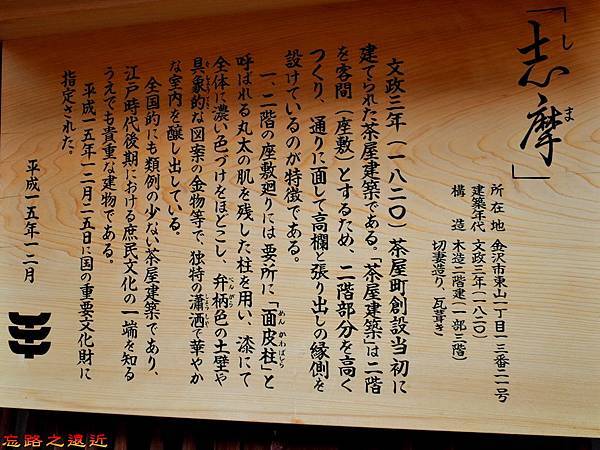 「志摩」
しま
所在地 金沢市東山一丁目一三番二一号
建築年代 文政三年(一八二〇)
構造 木造二階建(一部三階)
切妻造り、瓦葺き
文政三年(一八二〇)茶屋町創設当初に
建てられた茶屋建築である。「茶屋建築」は二階
を客間(座敷)とするため、二階部分を高く
つくり、通りに面して高欄と張り出しの縁側を
設けているのが特徴である。
一、二階の座敷廻りには要所に「面皮柱」と
めんかわばしら
呼ばれる丸太の肌を残した柱を用い、漆にて
全体に濃い色づけをほどこし、弁柄色の土壁や
べんがら
具象的な図案の金物等で、独特の瀟洒で華やか
ぐしょうてき
しょうしゃ
な室内を醸し出している。
全国的にも類例の少ない茶屋建築であり、
江戸時代後期における庶民文化の一端を知る
うえでも貴重な建物である。
平成一五年一二月二五日に国の重要文化財に
指定された。
平成一五年一二月
忘路之遠近